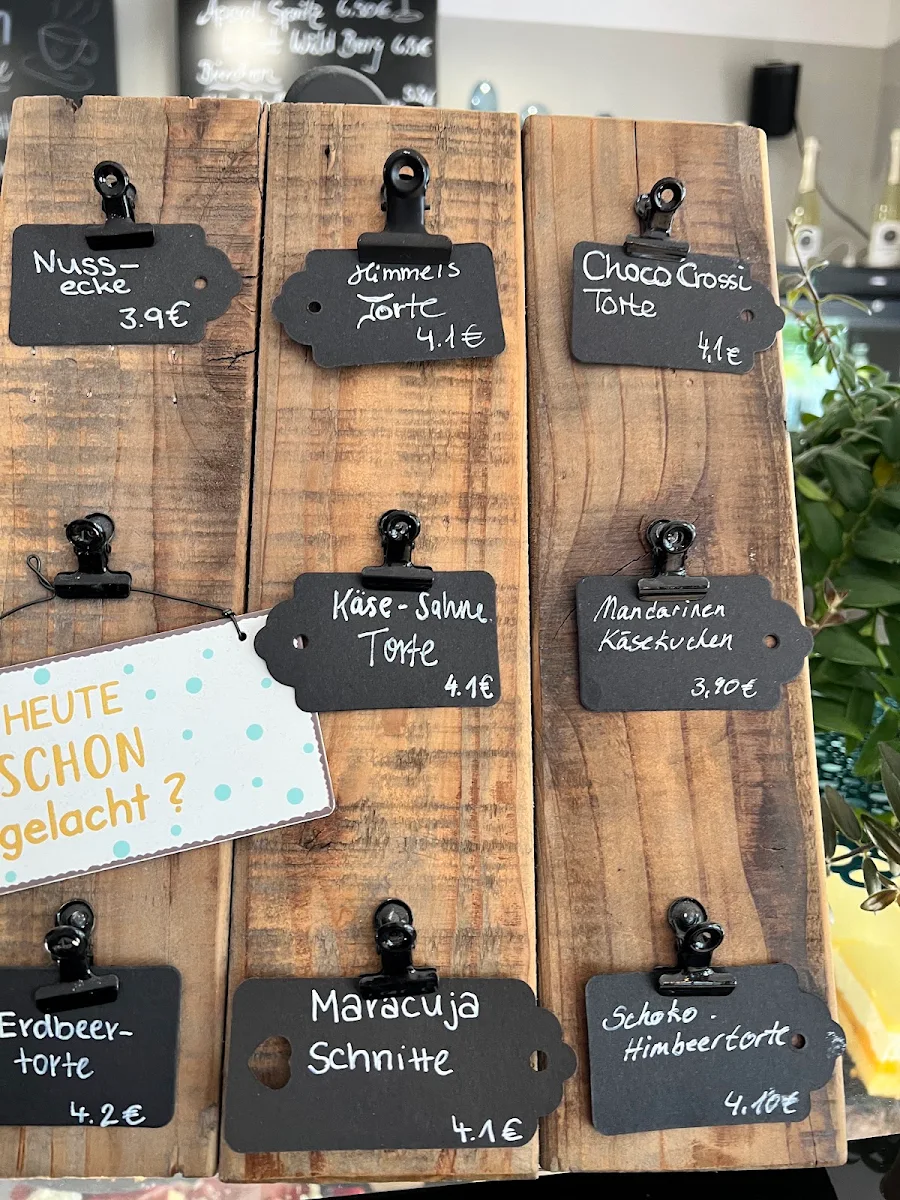 Aperol Spritz 6.50€
Wild Berry 6.5€
Nuss-
ecke
3.9€
Himmels
Torte
4.1€
Choco Crossi
Torte
4,1€
HEUTE
SCHON
gelacht ?
Käse-Sahne
Torte
4.1€
Mandarinen
Käsekuchen
3,90€
Erdbeer-
torte
4.2€
Maracuja
Schnitte
4.1€
Schoko-
Himbeertorte
4.10€